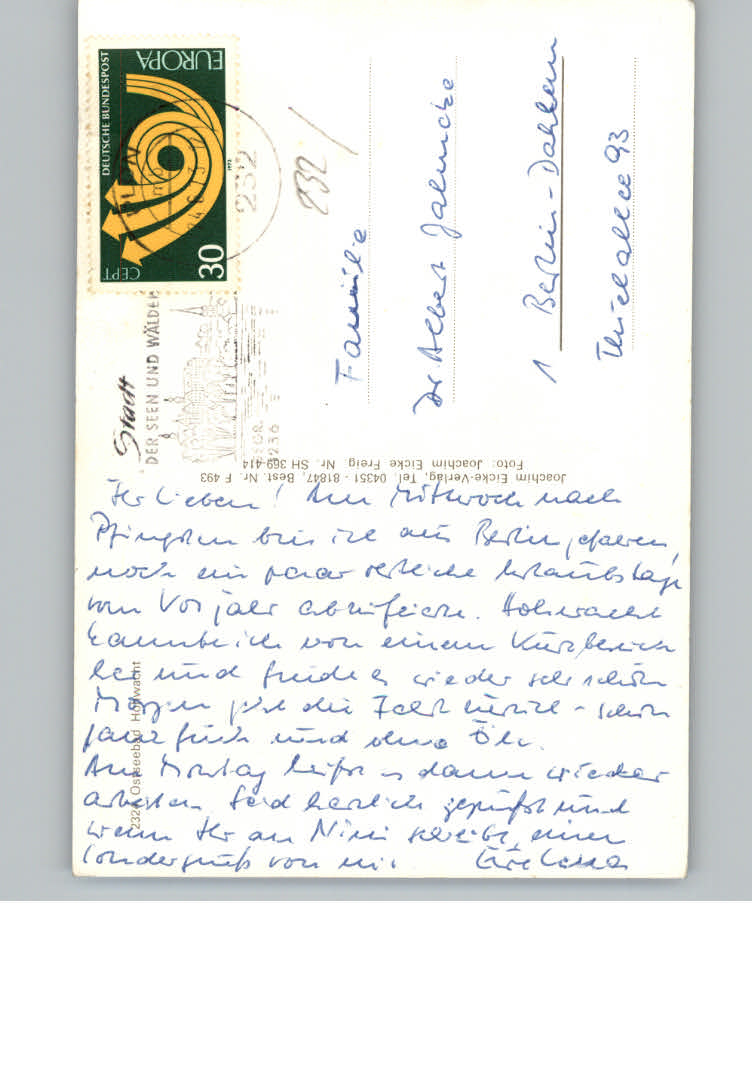 DEUTSCHE BUNDESPOST
EUROPA
CEPT
30
1973
PLÖN
232
232
Stadt
DER SEEN UND WÄLDER
Familie
Dr Albert Jahncke
1 Berlin-Dahlem
Thielallee 93
Joachim Eicke-Verlag, Tel. 04351 - 81847, Best. Nr. F 493
Foto: Joachim Eicke Freig. Nr. SH 369-414
2324 Ostseebad Hohwacht
Ihr Lieben! Am Mittwoch nach
Pfingsten bin ich aus Berlin gefahren,
noch ein paar restliche Urlaubstage
vom Vorjahr abzufeiern. Hohwacht
kannte ich von einem Kurzbesuch
her und finde es wieder sehr schön
Morgen geht die Fahrt zurück - schön
ganz früh und ohne
Am Montag heißt es dann wieder
arbeiten. Seid herzlich gegrüßt und
wenn Ihr an Nini schreibt, einen
Sondergruß von mir.